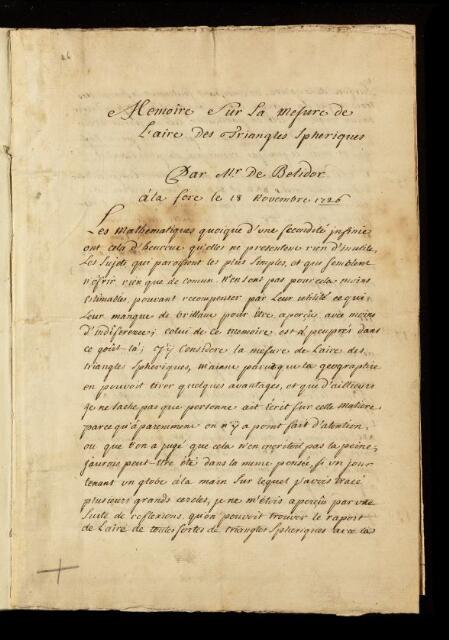 26
Memoire Sur La mesure de
L'aire des Triangles Spheriques
Par Mr. De Belidor
à la fere le 18 Novembre 1726
Les Mathematiques quoique d'une fecondité infinie
ont cela d'heureux qu'elles ne presentent rien d'inutile.
Les Sujets qui paroissent les plus Simples, et qui semblent
n'ofrir rien que de comun. N'en sont pas pour cela moins
estimables, pouvant recompenser par Leur utilité ce qui
Leur manque de brillant pour être aperçus avec moins
d'indiference; celui de ce memoire est à peu prés dans
ce goût là; J'y Considere la mesure de L'aire des
triangles Spheriques, parceque la geographie
en pouvoit tirer quelques avantages, et que d'ailleurs
je ne sache pas que personne ait écrit sur cette Matiere
parce qu'aparemment on n'y a point fait d'atention,
ou que l'on a jugé que cela n'en meritoit pas la peine,
j'aurois peut-être été dans la meme pensée, si un jour
tenant un globe à la main Sur lequel j'avois tracé
plusieurs grands cercles, je ne m'étois aperçu par une
Suite de reflexions, qu'on pouvoit trouver le raport
de L'aire de toutes sortes de triangles Spheriques avec la